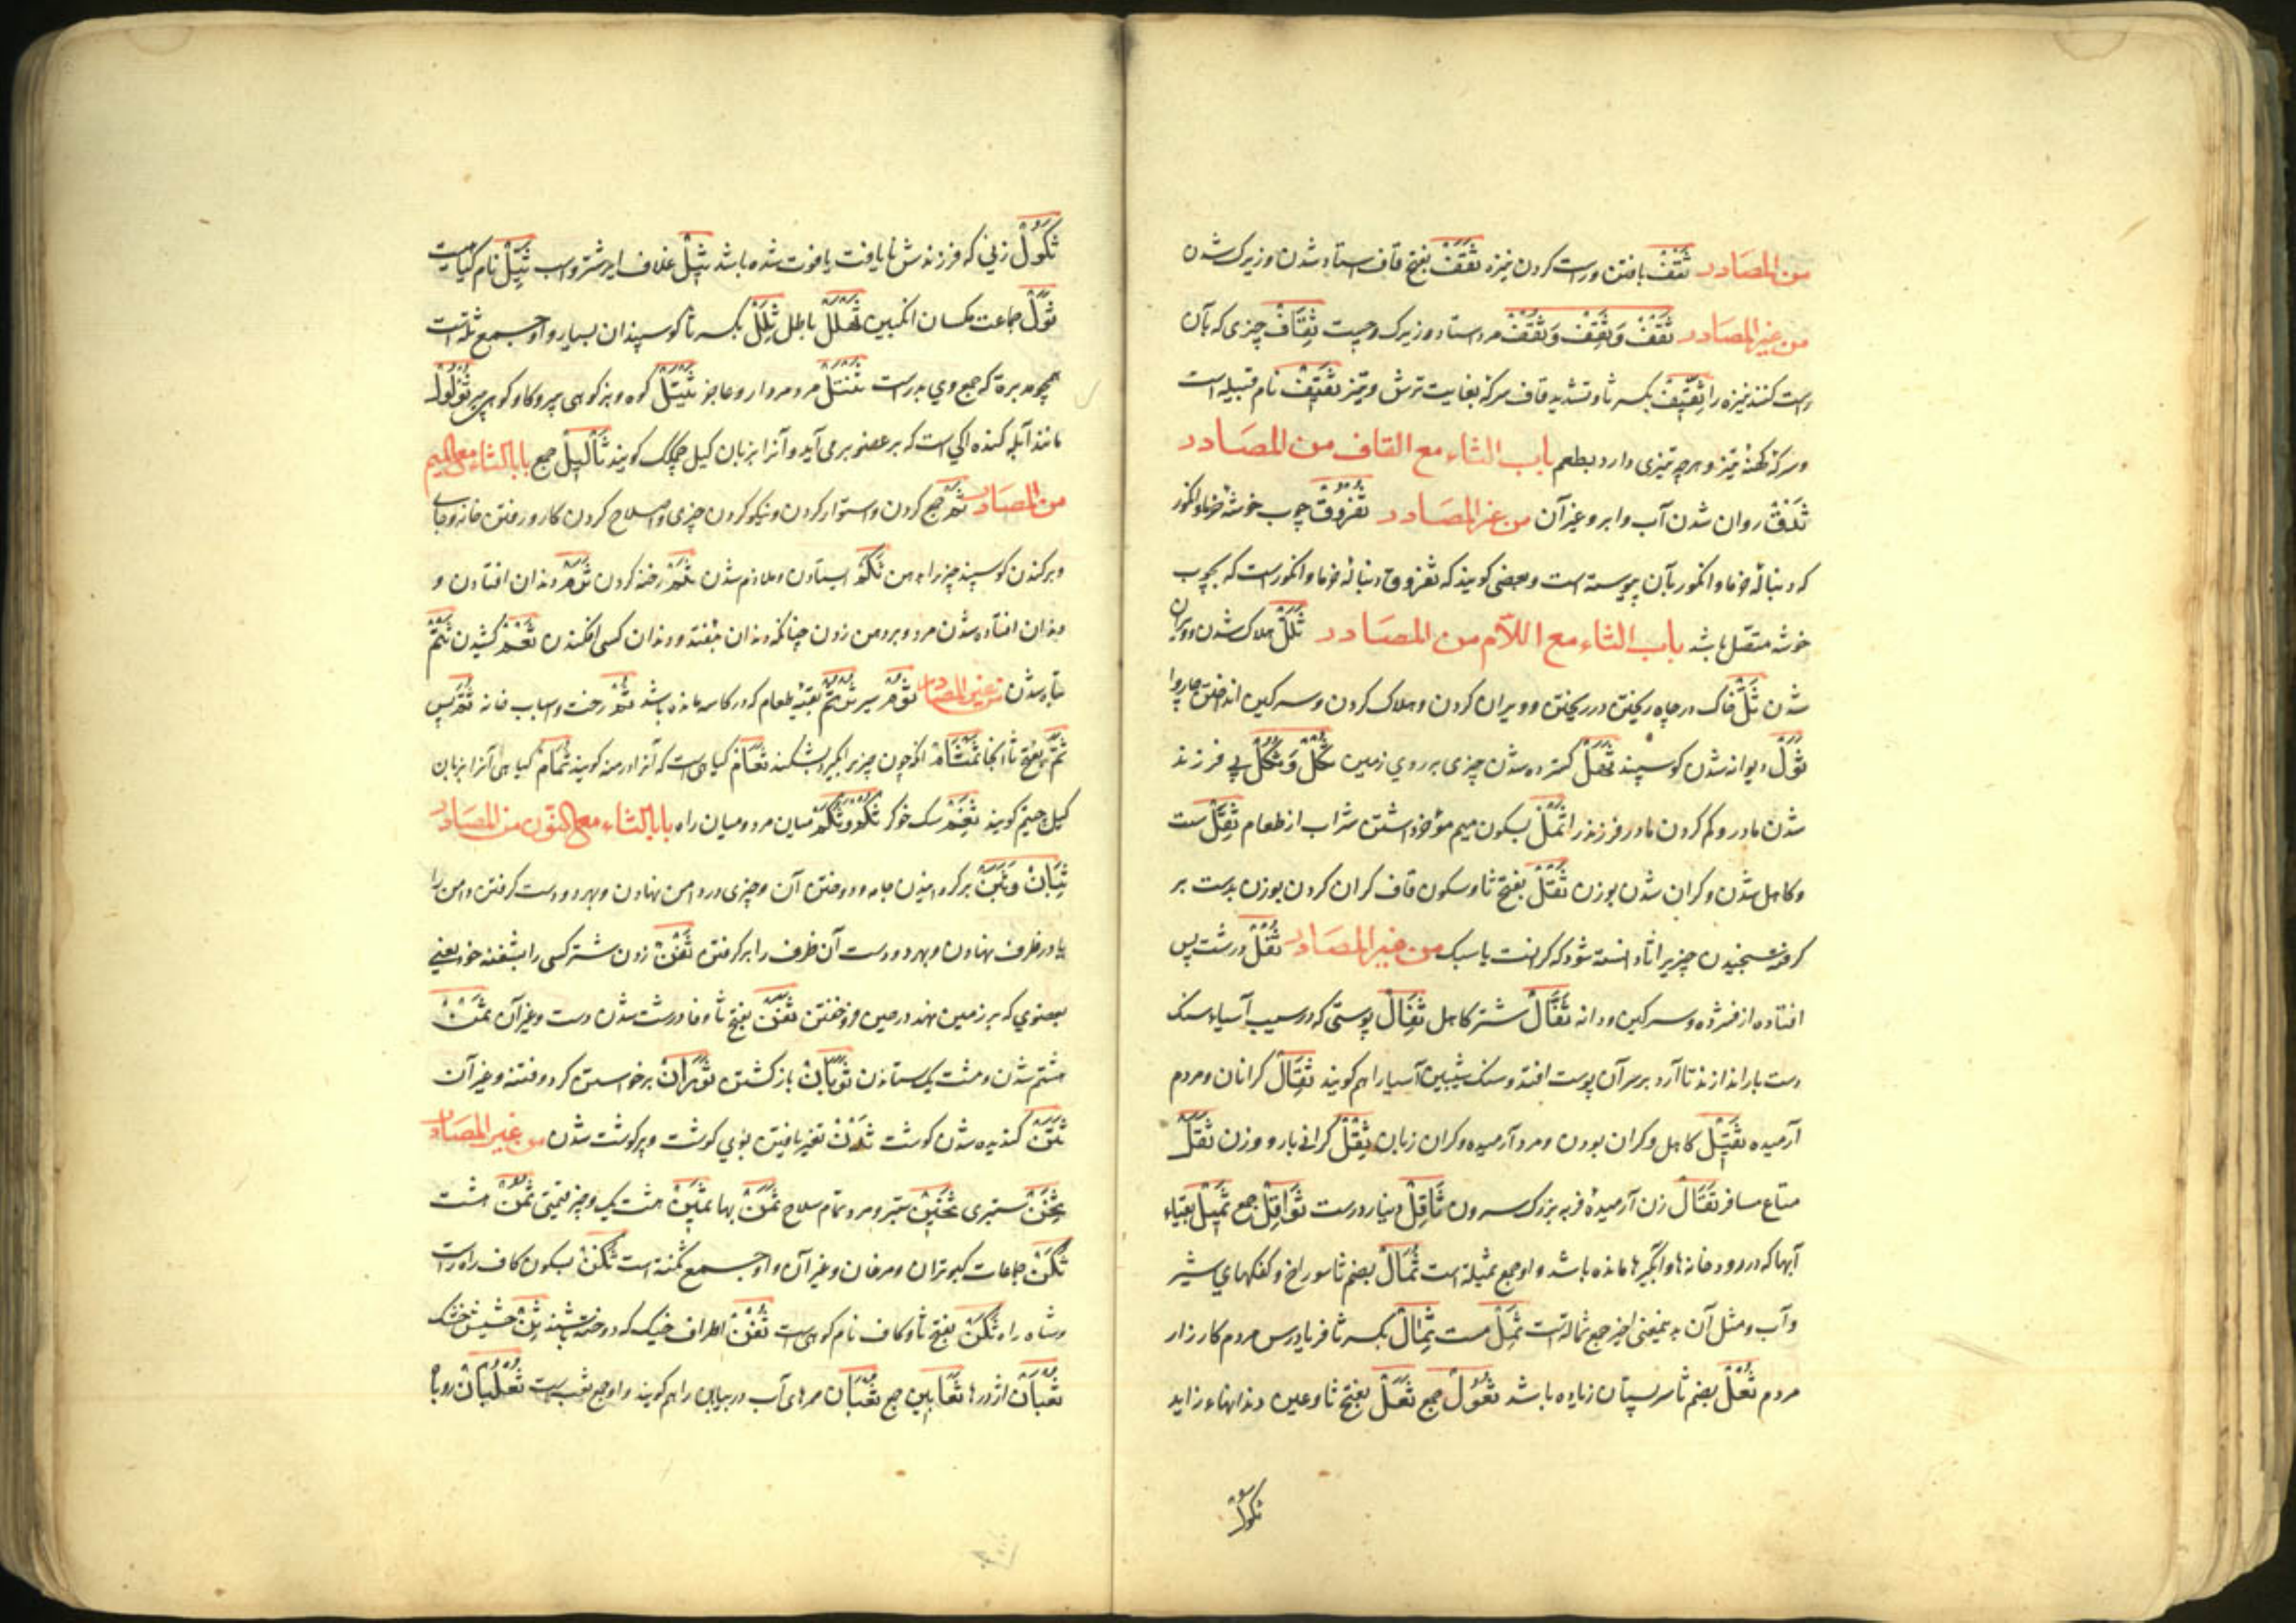 من المصادر ثَقْفْ یافتن و راست کردن نیزه ثَقَفْ بفتح قاف استاد شدن و زیرک شدن
من غیر المصادر ثَقْفْ وَثَقِفْ وَثَقُفْ مرد استاد و زیرک و چست ثِقَافْ چیزی که بآن
راست کنند نیزه را ثِقِّیفْ بکسر ثا و تشدید قاف سرکهٔ بغایت ترش و تیز ثَقِیفْ نام قبیله است
و سرکهٔ کهنهٔ تیز و هرچه تیزی دارد بطعم باب الثاء مع القاف من المصادر
ثَدْقْ روان شدن آب و ابر و غیر آن من غیر المصادر ثُفْرُوقْ چوب خوشهٔ خرما و انکور
که دنبالهٔ خرما و انکور بآن پیوسته است و بعضی کویند که ثفروق دنبالهٔ خرما و انکور است که بچوب
خوشه متصّل باشد باب الثاء مع اللّام من المصادر ثَلَلْ هلاک شدن و ویران
شدن ثَلّ خاک در چاه ریختن و ویران کردن و هلاک کردن و سرکین انداختن چاروا
ثَوَلْ دیوانه شدن کوسپند کسترده شدن چیزی بر روی زمین ثُکْلْ وَثَکَلْ بی فرزند
شدن مادر و کم کردن مادر فرزند را ثَمْلْ بسکون میم شراب از طعام ثِقَلْ سست
و کاهل شدن و کران شدن بوزن ثَقْلْ بفتح ثا و سکون قاف کران کردن بوزن بدست بر
کرفته سنجیدن چیزیرا تا دانسته شود که کرانست یا سبک من غیر المصادر ثُفْلْ درشت پس
افتاده از فشرده و سرکین و دانه ثَفَالْ شتر کاهل ثِفَالْ پوستی که در سیب آسیاء سنک
دست بار اندازند تا آرد بر سر آن پوست افتد و سنک شیبین آسیا را هم کویند ثِقَالْ کرانان و مردم
آرمیده ثَقِیلْ کاهل و کران بودن و مرد آرمیده و کران زبان ثِقْلْ کرانی بار و وزن ثَقَلْ
متاع مسافر ثَقَالْ زن آرمیدهٔ فربه بزرک سرون ثَاقِلْ دینار درست ثَوَاقِلْ جمع ثَمِیلْ بقیّاء
آبها که در رودخانه ها و آبگیرها مانده باشد و او جمع ثمیلة است ثُمَالْ بضم ثا سوراخ و کفکهای شیر
و آب و مثل آن و بمعنی اخیر جمع ثمالة است ثَمِلْ مست ثِمَالْ بکسر ثا فریادرس مردم کارزار
مردم ثُعْلْ بضم ثا سر پستان زیاده باشد ثُعُولْ جمع ثَعَلْ بفتح ثا و عین دندانهاء زاید
ثکول
ثَکُولْ زنی که فرزندش نایافت یا فوت شده باشد ثِیلْ غلاف ایر شتر و اسب ثَیِّلْ نام کیاهیست
ثَوْلْ جماعت مکسان انکبین باطل ثِلَلْ بکسر ثا کوسپندان بسیار و او جمع ثلّة است
همچو بدرة که جمع وی بدرست ثَنْتَلْ مرد مردار و عاجز ثَیْتَلْ کوه و بز کوهی پیر و کاو کوهی پیر ثُؤْلُولْ
مانند آبله کنده اکی است که بر عضو بر می آید و آنرا بزبان کیل کویند ثَآلِیلْ جمع باب الثاء مع المیم
من المصادر ثَمّ جمع کردن و استوار کردن و نیکو کردن چیزی و اصلاح کردن کار و رفتن خانه و جای
و برکندن کوسپند چیز را بدهن ثَکْمْ ایستادن و ملازم شدن ثَلْمْ رخنه کردن ثَرَمْ دندان افتادن و
دندان افتاده شدن مرد و بر دهن زدن چنانکه دندان بیفتد و دندان کسی افکندن ثَعْمْ کشیدن ثَتَمْ
تباه شدن من غیر المصادر ثُوْمْ سیر ثُرْتُمْ بقیّه طعام که در کاسه مانده باشد ثُمّ رخت و اسباب خانه ثُمَّ پس
ثَمَّ بفتح ثا آنجا ثَمْثَامْ آنکه چون چیز را بکیرد بشکند ثَغَامْ کیاهی است که آنرا درمنه کویند ثُمَامْ کیاهی آنرا بزبان
کیل کویند سک خوکر ثَکَمْ میان مرد و میان راه باب الثاء مع النون من المصادر
ثِبَانْ وَثَبْنْ بر کردانیدن جامه و دوختن آن و چیزی در دامن نهادن و بهر دو دست کرفتن دامن را
یا در ظرف نهادن و بهر دو دست آن ظرف را بر کرفتن ثَفْنْ زدن شتر کسی را بثفنه خود یعنی
بعضوی که بر زمین نهد در حین فرو خفتن ثَفَنْ بفتح ثا و فا درشت شدن دست و غیر آن ثَمْنْ
هشتم شدن و هشت یک ستدن ثَوَبَانْ باز کشتن ثَوَرَانْ برخواستن کرد و فتنه و غیر آن
ثَتَنْ کندیده شدن کوشت ثَدَنْ تغیر یافتن بوی کوشت و پر کوشت شدن من غیر المصادر
ثِخَنْ ستبری ثَخِینْ ستبر و مرد تمام سلاح ثَمَنْ بها ثَمِینْ هشت یک و چیز قیمتی ثُمُنْ هشت
ثُکَنْ جماعات کبوتران و مرغان و غیر آن و او جمع ثکنة است ثَکْنْ بسکون کاف راه راست
و شاه راه ثَکَنْ بفتح ثا و کاف نام کوهی است ثُفْنْ اطراف خیک که دوخته باشند ثِنّ حشیش خشک
ثُعْبَانْ اژدرها ثَعَابِینْ جمع ثُعْبَانْ ممرهای آب در بیابان را هم کویند و او جمع ثعب است ثُعْلُبَانْ روباه